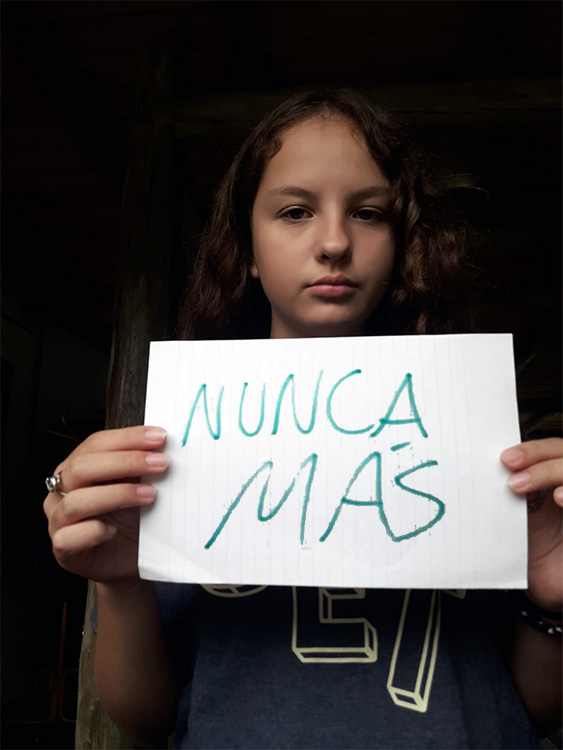 NUNCA
MÁS